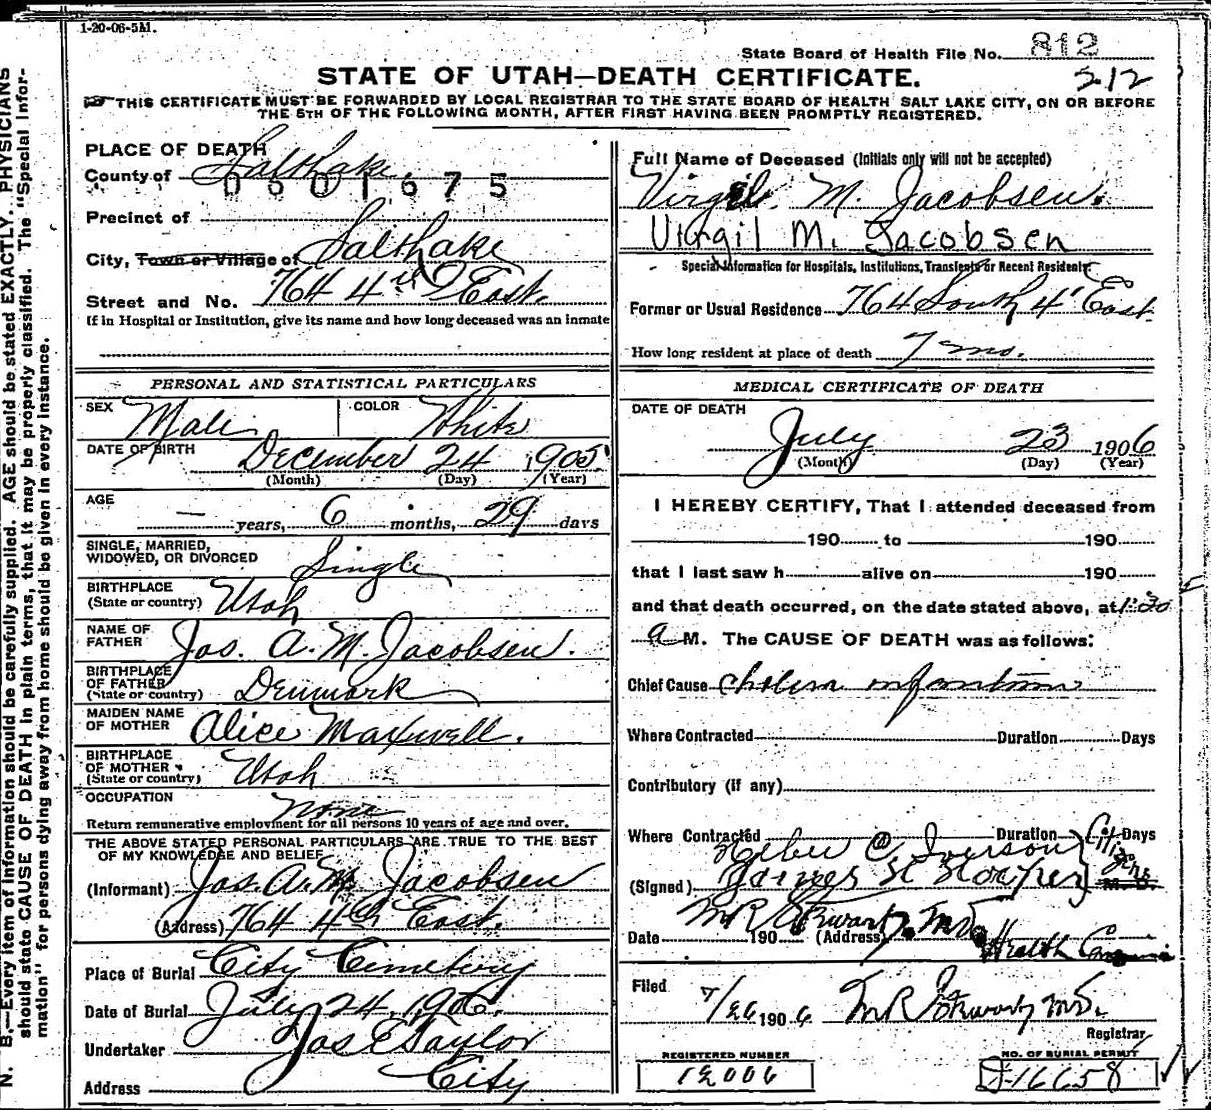 1-20-06-5M.
State Board of Health File No. 812
STATE OF UTAH—DEATH CERTIFICATE.
212
THIS CERTIFICATE MUST BE FORWARDED BY LOCAL REGISTRAR TO THE STATE BOARD OF HEALTH SALT LAKE CITY, ON OR BEFORE
THE 5TH OF THE FOLLOWING MONTH, AFTER FIRST HAVING BEEN PROMPTLY REGISTERED.
N. B.—Every item of information should be carefully supplied. AGE should be stated EXACTLY. PHYSICIANS
should state CAUSE OF DEATH in plain terms, that it may be properly classified. The "Special Infor-
mation" for persons dying away from home should be given in every instance.
PLACE OF DEATH
County of Salt Lake
0601675
Precinct of
City, Town or Village of Salt Lake
Street and No. 764 4th East.
If in Hospital or Institution, give its name and how long deceased was an inmate
PERSONAL AND STATISTICAL PARTICULARS
SEX Male COLOR White
DATE OF BIRTH December 24 1905
(Month) (Day) (Year)
AGE — years, 6 months, 29 days
SINGLE, MARRIED,
WIDOWED, OR DIVORCED Single
BIRTHPLACE
(State or country) Utah
NAME OF
FATHER Jos. A. M. Jacobsen.
BIRTHPLACE
OF FATHER
(State or country) Denmark
MAIDEN NAME
OF MOTHER Alice Maxwell.
BIRTHPLACE
OF MOTHER
(State or country) Utah
OCCUPATION None
Return remunerative employment for all persons 10 years of age and over.
THE ABOVE STATED PERSONAL PARTICULARS ARE TRUE TO THE BEST
OF MY KNOWLEDGE AND BELIEF
(Informant) Jos. A. M. Jacobsen
(Address) 764 4th East.
Place of Burial City Cemetery
Date of Burial July 24, 1906.
Undertaker Jos E Taylor
Address City
Full Name of Deceased (Initials only will not be accepted)
Virgil M. Jacobsen.
Virgil M. Jacobsen
Special Information for Hospitals, Institutions, Transients or Recent Residents.
Former or Usual Residence 764 South 4' East.
How long resident at place of death 7 mo.
MEDICAL CERTIFICATE OF DEATH
DATE OF DEATH
July 23 1906
(Month) (Day) (Year)
I HEREBY CERTIFY, That I attended deceased from
190 to 190
that I last saw h alive on 190
and that death occurred, on the date stated above, at 1:30
a M. The CAUSE OF DEATH was as follows:
Chief Cause Cholera infantum
Where Contracted Duration Days
Contributory (if any)
Where Contracted Duration Days
Heber C Iverson
(Signed) James H M.D.
Date 190 (Address) Health
Filed 7/26 1906 M R Stewart, M.D.
Registrar
REGISTERED NUMBER
NO. OF BURIAL PERMIT
D-16658